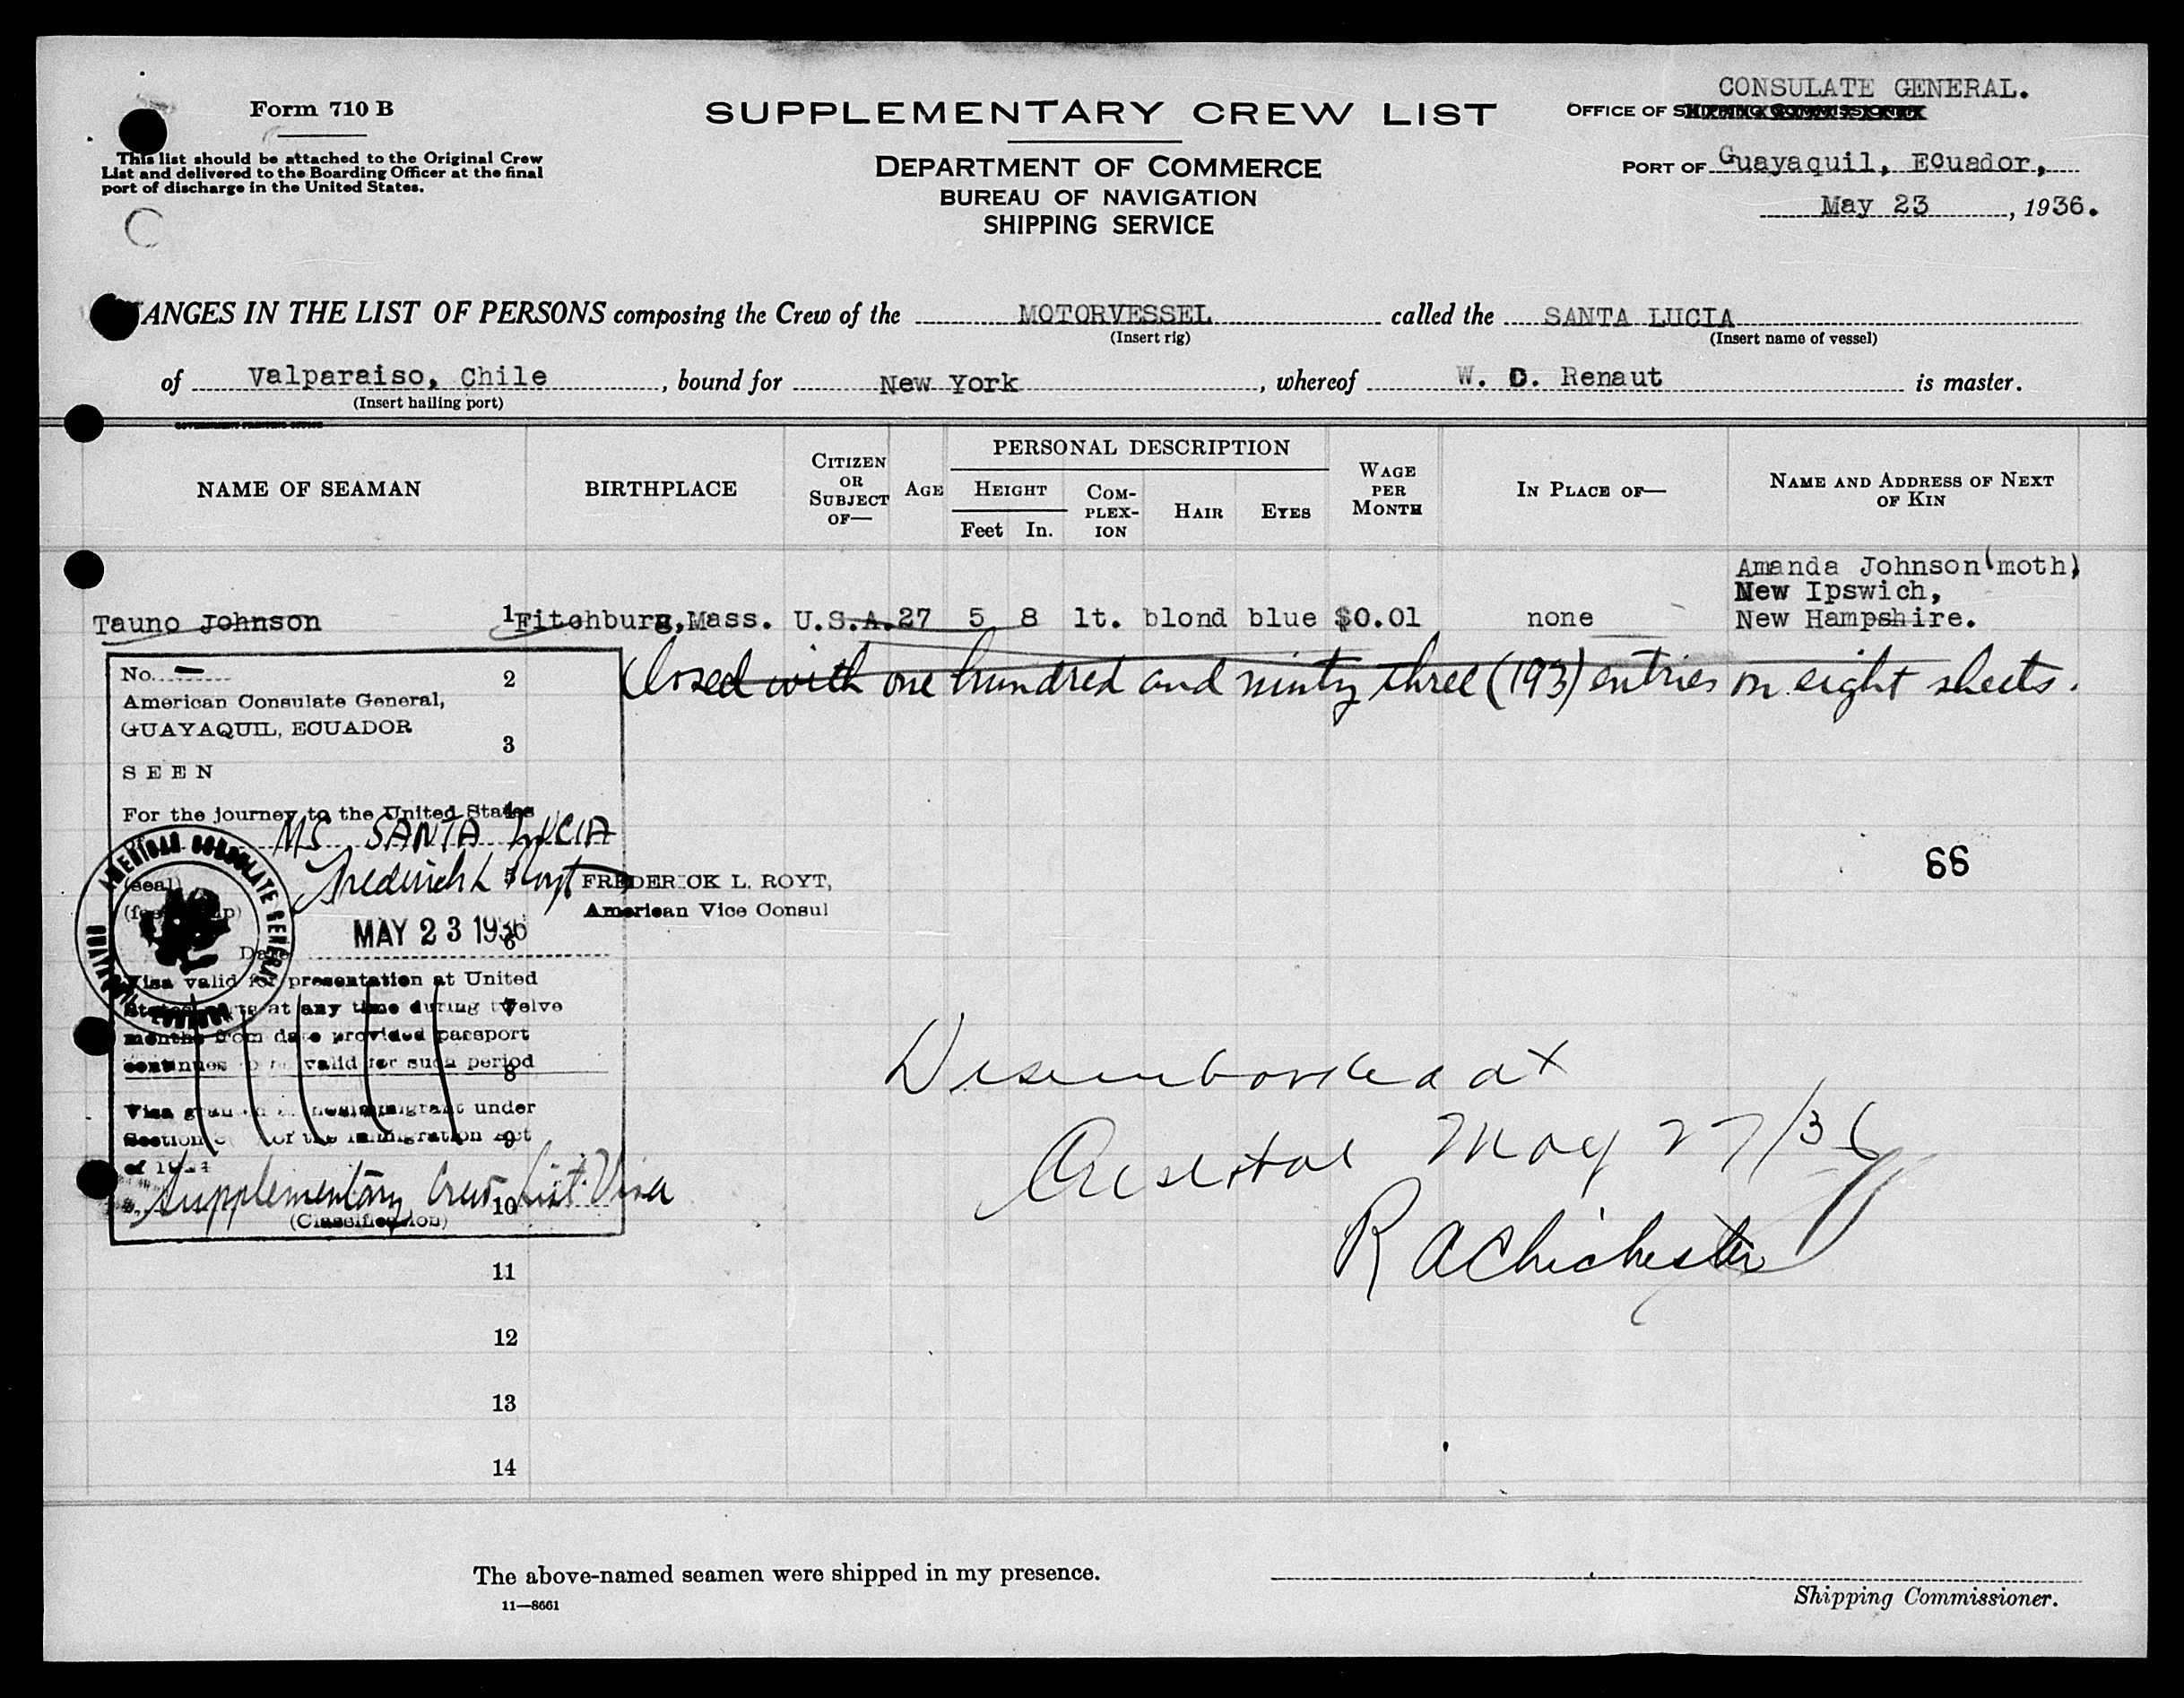 Form 710 B
This list should be attached to the Original Crew
List and delivered to the Boarding Officer at the final
port of discharge in the United States.
SUPPLEMENTARY CREW LIST
DEPARTMENT OF COMMERCE
BUREAU OF NAVIGATION
SHIPPING SERVICE
CONSULATE GENERAL.
OFFICE OF SHIPPING COMMISSIONER
PORT OF Guayaquil, Ecuador,
May 23, 1936.
ANGES IN THE LIST OF PERSONS composing the Crew of the MOTORVESSEL called the SANTA LUCIA
(Insert rig) (Insert name of vessel)
of Valparaiso, Chile, bound for New York, whereof W. D. Renaut is master.
(Insert hailing port)
GOVERNMENT PRINTING OFFICE
NAME OF SEAMAN BIRTHPLACE CITIZEN OR SUBJECT OF— AGE PERSONAL DESCRIPTION HEIGHT Feet In. COM-PLEX-ION HAIR EYES WAGE PER MONTH IN PLACE OF— NAME AND ADDRESS OF NEXT OF KIN
Amanda Johnson (moth)
New Ipswich,
Tauno Johnson 1 Fitchburg, Mass. U.S.A. 27 5 8 lt. blond blue $0.01 none New Hampshire.
2 Closed with one hundred and ninty three (193) entries on eight sheets.
3
4
5
6
7
8
9
10
11
12
13
14
No. —
American Consulate General,
GUAYAQUIL, ECUADOR
SEEN
For the journey to the United States
MS SANTA LUCIA
(seal)
Frederick L Royt FREDERICK L. ROYT,
American Vice Consul
AMERICAN CONSULATE GENERAL
GUAYAQUIL ECUADOR
Date MAY 23 1936
Visa valid for presentation at United
States ports at any time during twelve
months from date provided passport
continues to be valid for such period
Visa granted as nonimmigrant under
Section 3 of the Immigration Act
of 1924
Supplementary Crew List Visa
(Classification)
66
Disembarked at
Cristobal May 27/36
R A Chichester
The above-named seamen were shipped in my presence.
11—8661
Shipping Commissioner.